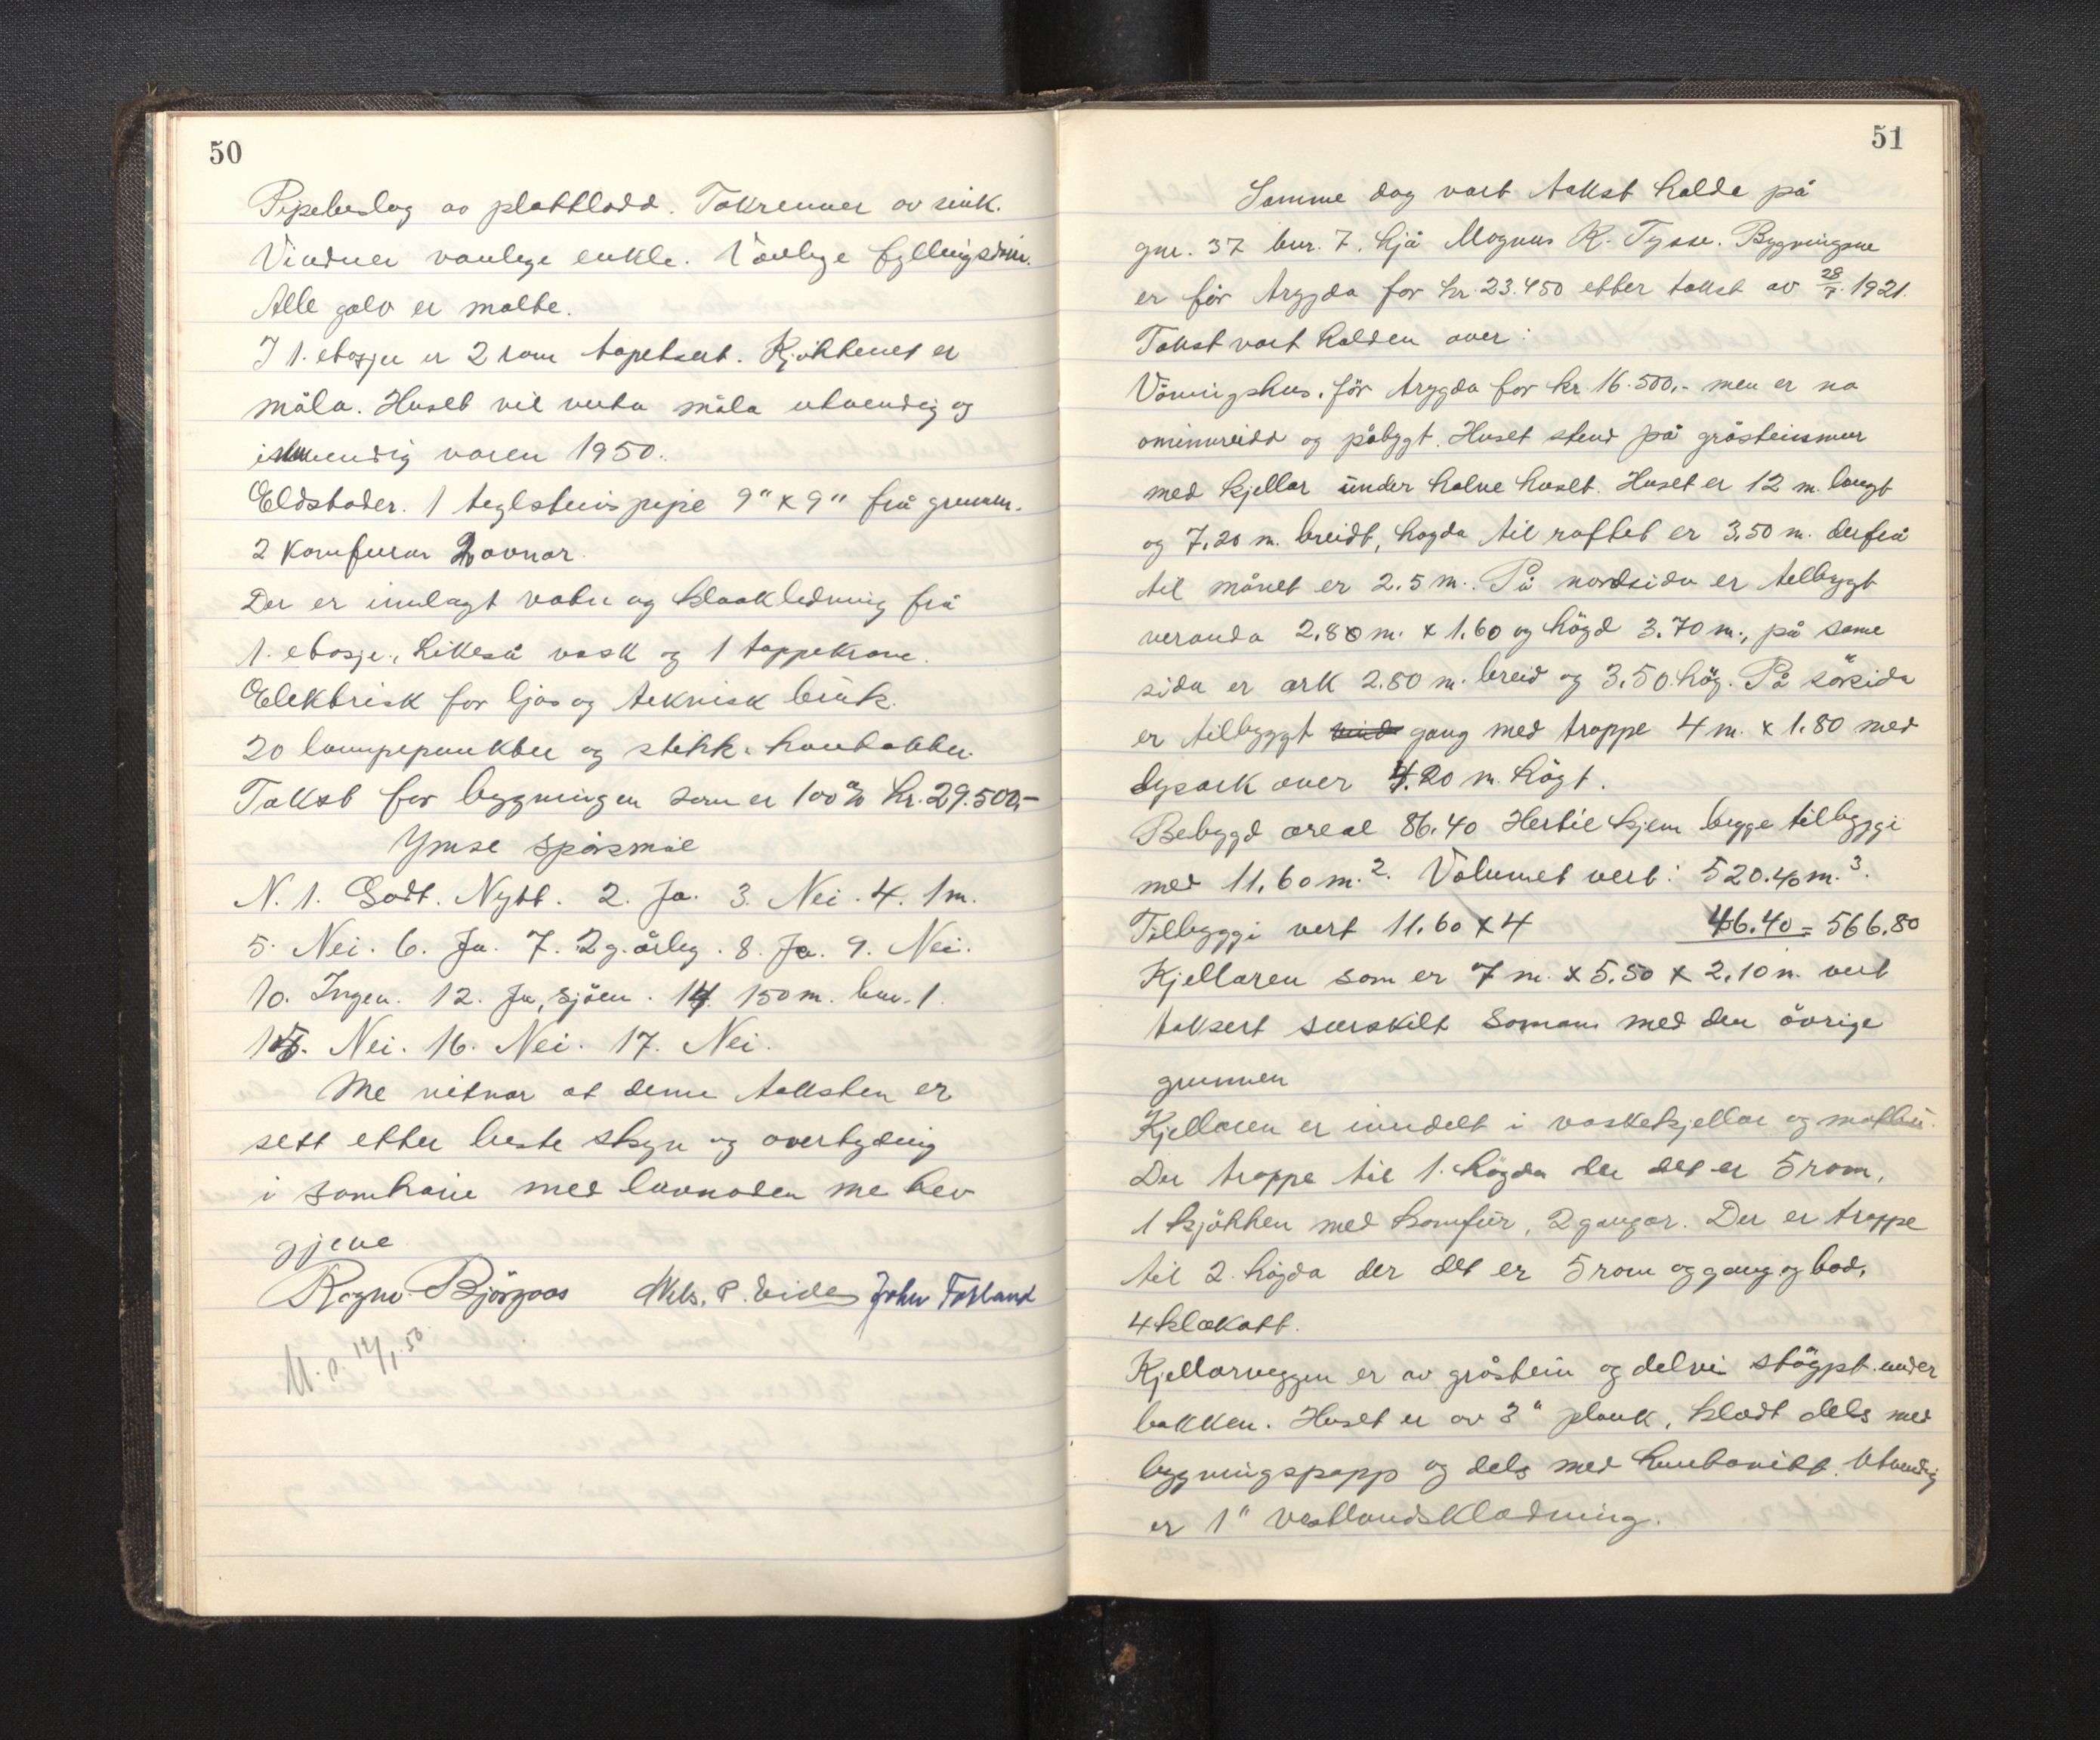 50
Pipebeslag av plattlodd. Takrenner av sink.
Vinduer vanlege enkle. Vanlege fyllingsdører.
Alle golv er malte.
I 1. etasje er 2 rom tapetsert. Kjøkkenet er
måla. Huset vil verta måla utvendig og
innvendig våren 1950.
Eldstader. 1 teglsteins pipe 9" x 9" frå grunn.
2 komfurar 2 ovnar.
Der er innlagt vatn og kloakledning frå
1. etasje., likeså vask og 1 tappekrane.
Elektrisk for ljos og teknisk bruk.
20 lampepunkter og stikk. kontakter.
Takst for bygningen som er 100% kr. 29.500,-
Ymse spørsmål
N. 1. Godt. Nytt. 2. Ja. 3. Nei. 4. 1 m.
5. Nei. 6. Ja. 7. 2 g. årleg. 8. Ja. 9. Nei.
10. Ingen. 12. Ja, sjøen. 14. 150 m. bnr. 1.
15. Nei. 16. Nei. 17. Nei.
Me vitnar at denne taksten er
sett etter beste skyn og overtyding
i samhøve med lovnaden me hev
gjeve
Ragnv. Bjørgaas Nils. P. Eide John Fosland
12/1. 50
51
Samme dag vart takst halde på
gnr. 37 bnr. 7. hjå Magnus K. Tysse. Bygningane
er før trygda for kr. 23.450 etter takst av 28/7. 1921.
Takst vart halden over:
Våningshus. før trygda for kr. 16.500,- men er no
ominnreidd og påbygt. Huset stend på gråsteinsmur
med kjellar under halve huset. Huset er 12 m. langt
og 7,20 m. breidt, høgda til raftet er 3,50 m. derfrå
til mønet er 2.5 m. På nordsida er tilbygt
veranda 2.80 m. x 1.60 og högd 3.70 m., på same
sida er ark 2.80 m. breid og 3.50 hög. På sörsida
er tilbyggt gang med trappe 4 m. x 1.80 med
over 4.20 m. högt.
Bebygd areal 86.40 Hertil kjem begge tilbyggi
med 11,60 m.2. Volumet vert: 520.40 m.3.
Tilbyggi vert 11.60 x 4 46.40 = 566.80
Kjellaren som er 7 m. x 5.50 x 2.10 m. vert
taksert serskilt saman med den övrige
grunnen
Kjellaren er inndelt i vaskekjellar og matbu.
Der trappe til 1. högda der det er 5 rom,
1 kjökken med komfür, 2 gangar. Der er trappe
til 2. högda der det er 5 rom og gang og bod,
4 klækott.
Kjellarveggen er av gråstein og delvis stöypt under
bakken. Huset er av 3" plank, klædt dels med
bygningspapp og dels med huntonitt. Utvendig
er 1" vestlandsklædning.